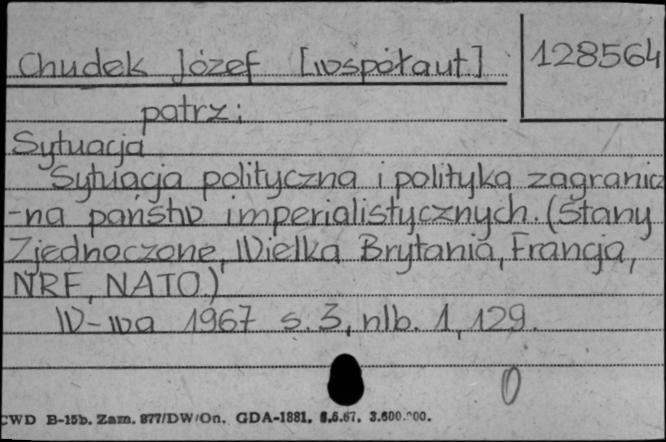 Chudek Józef [współaut.] 128564
patrz:
Sytuacja
Sytuacja polityczna i polityka zagranicz
-na państw imperialistycznych. (Stany
Zjednoczone, Wielka Brytania, Francja,
NRF, NATO.)
W-wa 1967 s. 3, nlb. 1, 129.
0
CWD B-15b. Zam. 877/DW/On. GDA-1881. 6.6.67. 3.600.000.